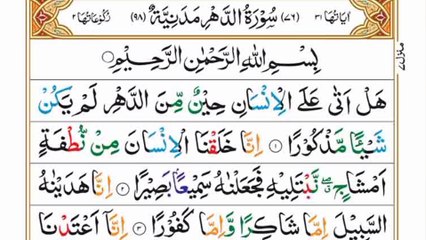 اٰيَاتُهَا ٣١ (٧٦) سُوْرَةُ الدَّهْرِ مَدَنِيَّةٌ (٩٨) رُكُوْعَاتُهَا ٢
بِسْمِ اللّٰهِ الرَّحْمٰنِ الرَّحِيْمِ
هَلْ اَتٰى عَلَى الْاِنْسَانِ حِيْنٌ مِّنَ الدَّهْرِ لَمْ يَكُنْ
شَيْـًٔا مَّذْكُوْرًا ١ اِنَّا خَلَقْنَا الْاِنْسَانَ مِنْ نُّطْفَةٍ
اَمْشَاجٍ ۖ نَّبْتَلِيْهِ فَجَعَلْنٰهُ سَمِيْعًۢا بَصِيْرًا ٢ اِنَّا هَدَيْنٰهُ
السَّبِيْلَ اِمَّا شَاكِرًا وَّاِمَّا كَفُوْرًا ٣ اِنَّآ اَعْتَدْنَا